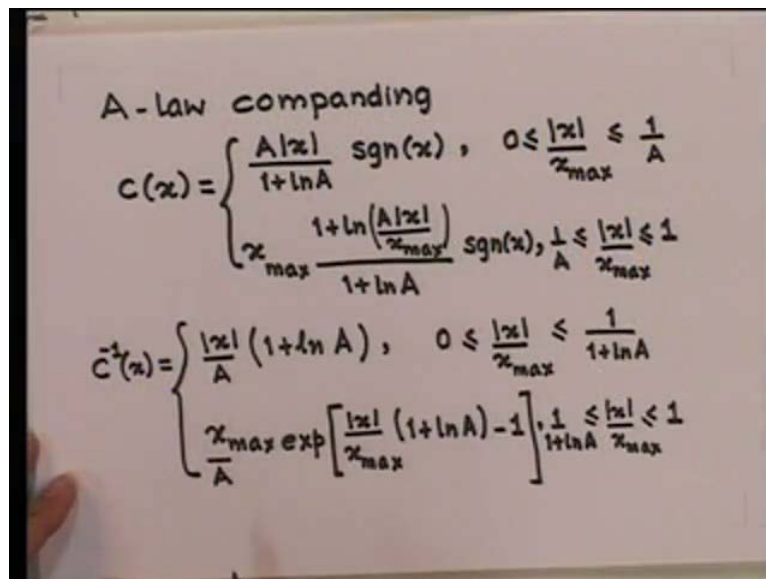 A-law companding
C(x) = { A|x| / (1+lnA) sgn(x), 0 ≤ |x|/x_max ≤ 1/A
x_max (1+ln(A|x|/x_max)) / (1+lnA) sgn(x), 1/A ≤ |x|/x_max ≤ 1
C⁻¹(x) = { |x|/A (1+ln A), 0 ≤ |x|/x_max ≤ 1/(1+lnA)
x_max/A exp[|x|/x_max (1+lnA)-1], 1/(1+lnA) ≤ |x|/x_max ≤ 1